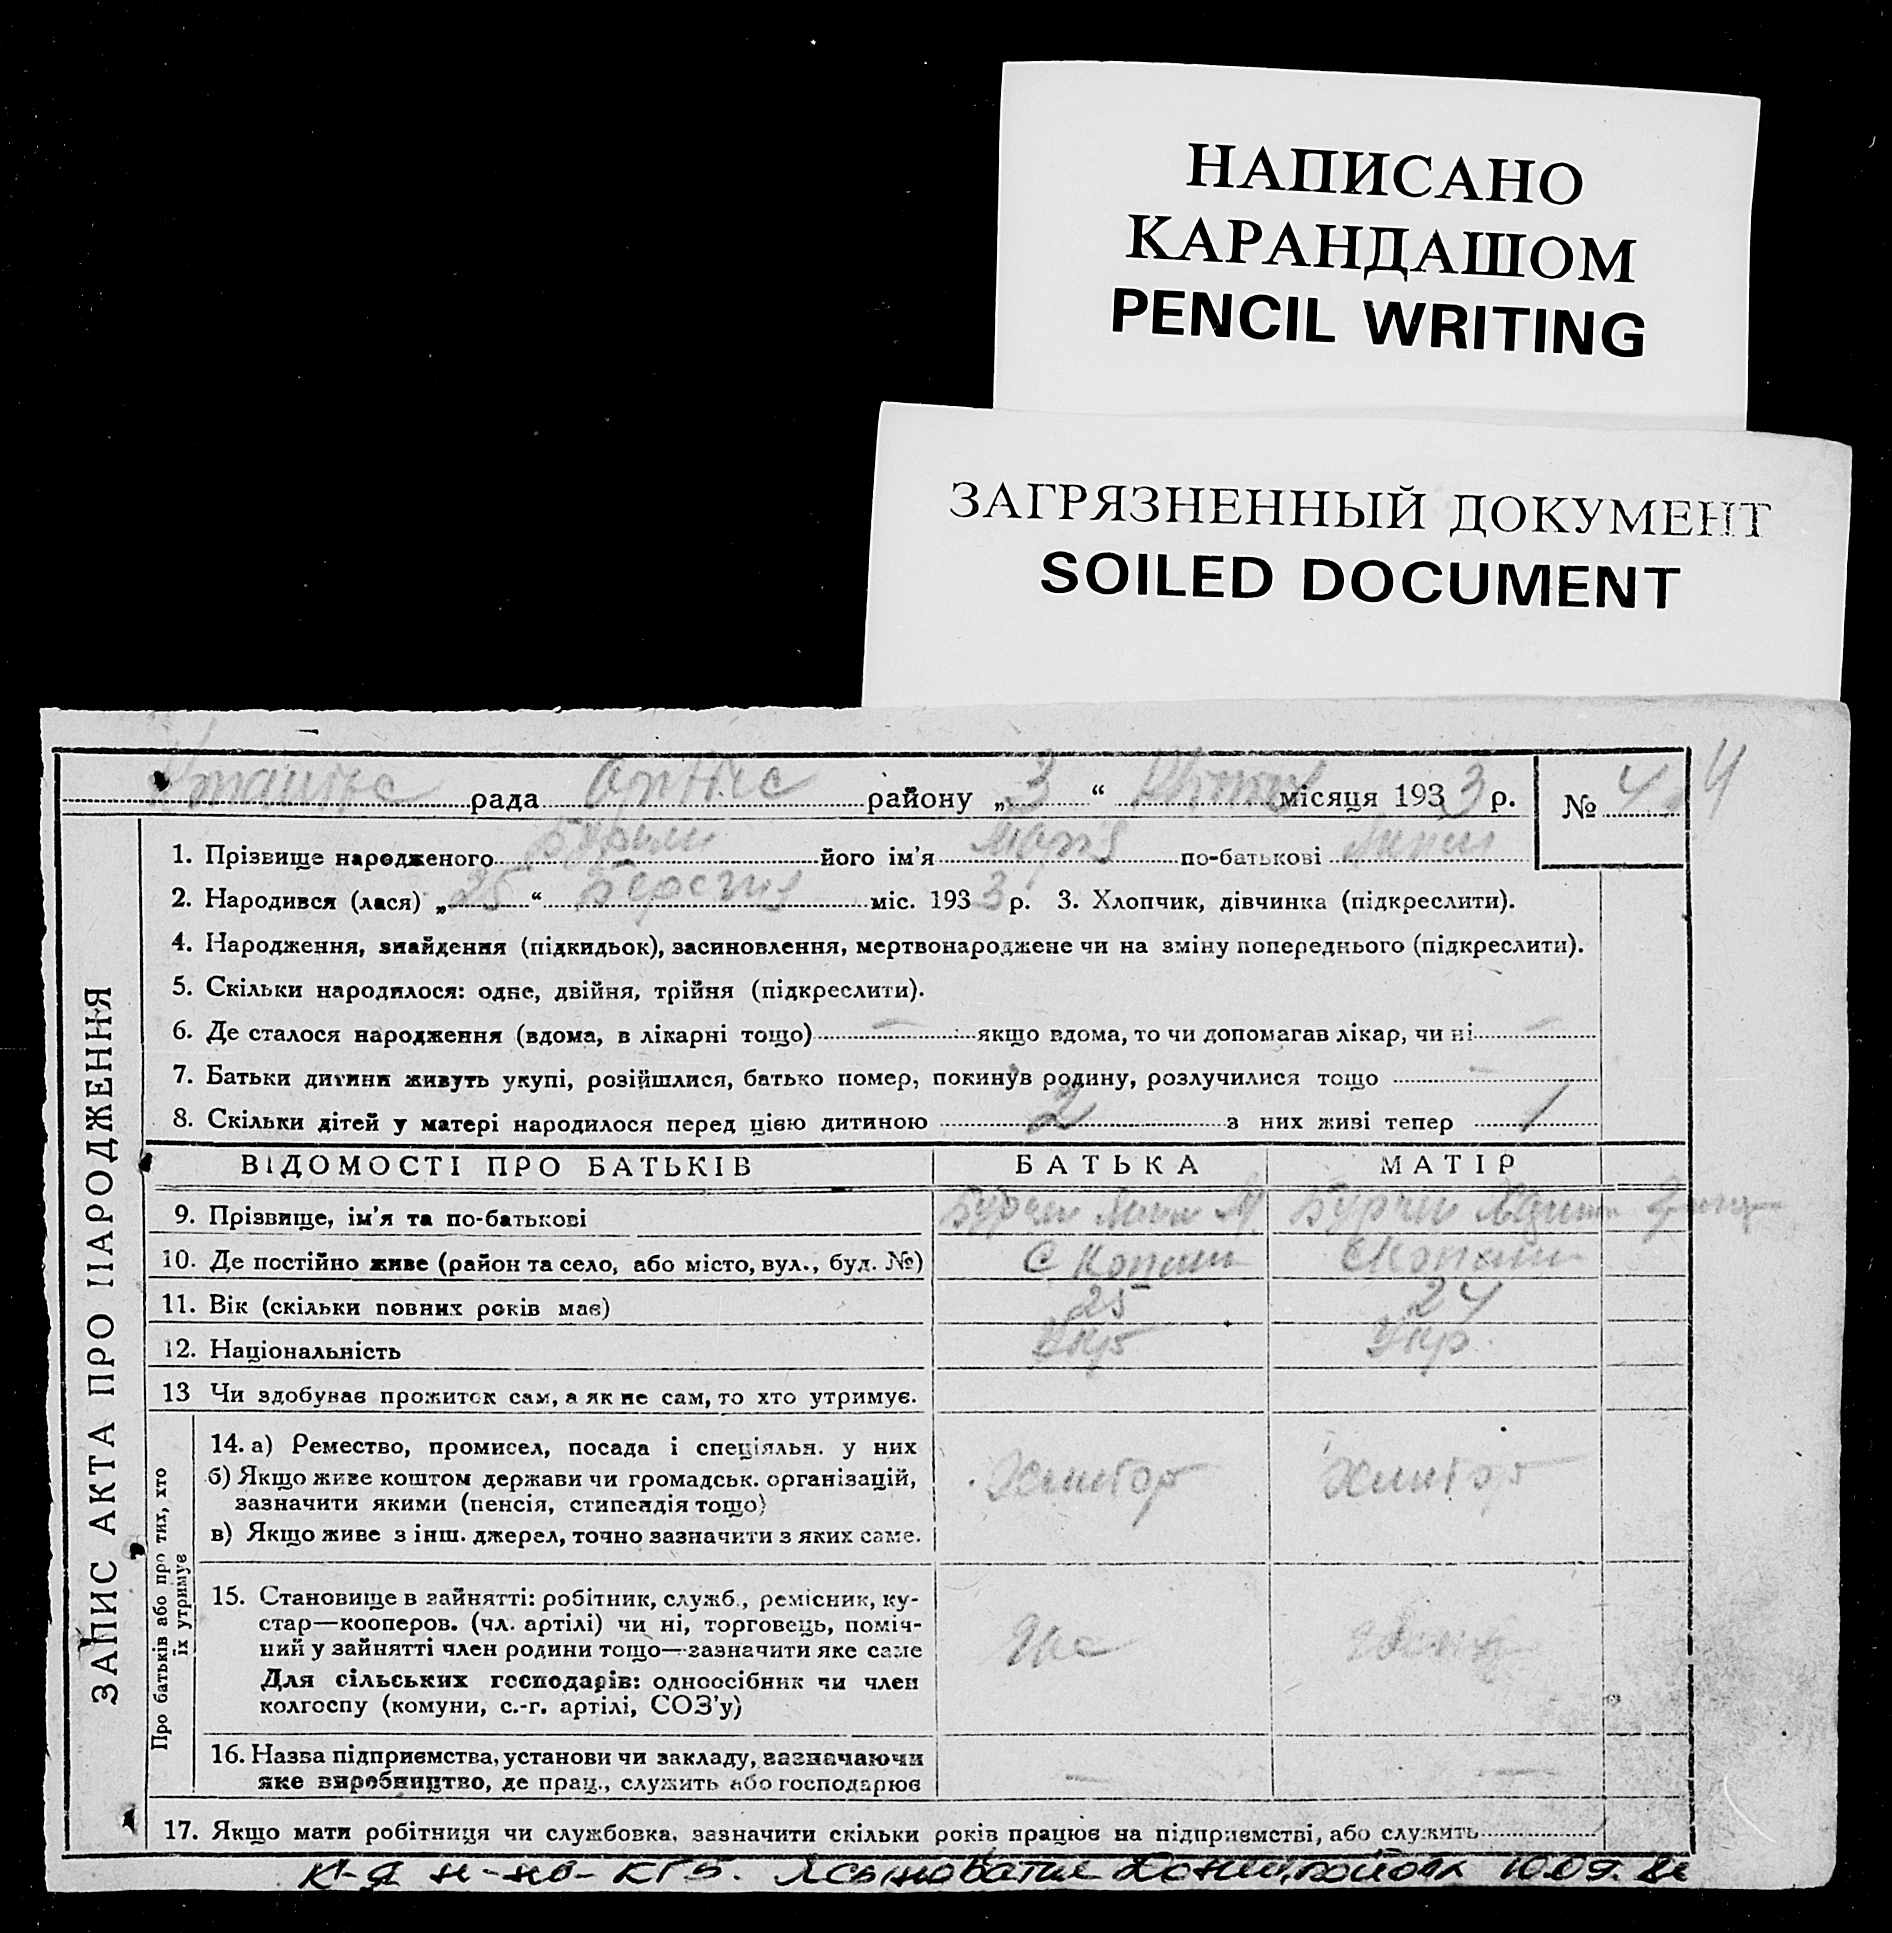 НАПИСАНО
КАРАНДАШОМ
PENCIL WRITING
ЗАГРЯЗНЕННЫЙ ДОКУМЕНТ
SOILED DOCUMENT
4
рада району „ 3 “ місяця 1933 р. № 4
ЗАПИС АКТА ПРО НАРОДЖЕННЯ
1. Прізвище народженого його ім'я Марія по-батькові
2. Народився (лася) „ 25 “ Березня міс. 1933 р. 3. Хлопчик, дівчинка (підкреслити).
4. Народження, знайдення (підкидьок), засиновлення, мертвонароджене чи на зміну попереднього (підкреслити).
5. Скільки народилося: одне, двійня, трійня (підкреслити).
6. Де сталося народження (вдома, в лікарні тощо) — якщо вдома, то чи допомагав лікар, чи ні —
7. Батьки дитини живуть укупі, розійшлися, батько помер, покинув родину, розлучилися тощо —
8. Скільки дітей у матері народилося перед цією дитиною 2 з них живі тепер 1
ВІДОМОСТІ ПРО БАТЬКІВ БАТЬКА МАТІР
9. Прізвище, ім'я та по-батькові
10. Де постійно живе (район та село, або місто, вул., буд. №)
11. Вік (скільки повних років має) 25 24
12. Національність Укр Укр.
13 Чи здобуває прожиток сам, а як не сам, то хто утримує.
Про батьків або про тих, хто
їх утримує
14. а) Ремество, промисел, посада і спеціяльн. у них
б) Якщо живе коштом держави чи громадськ. організацій,
зазначити якими (пенсія, стипендія тощо)
в) Якщо живе з інш. джерел, точно зазначити з яких саме.
15. Становище в зайнятті: робітник, служб., ремісник, ку-
стар—кооперов. (чл. артілі) чи ні, торговець, поміч-
ний у зайнятті член родини тощо—зазначити яке саме
Для сільських господарів: одноосібник чи член
колгоспу (комуни, с.-г. артілі, СОЗ'у)
16. Назва підприємства, установи чи закладу, зазначаючи
яке виробництво, де прац., служить або господарює — —
17. Якщо мати робітниця чи службовка, зазначити скільки років працює на підприємстві, або служить